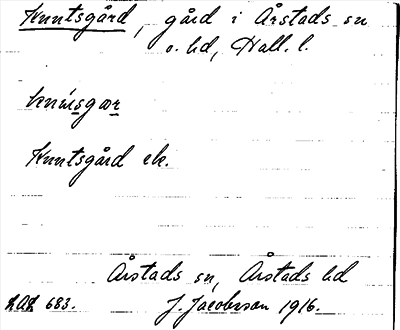 Knutsgård, gård i Årstads sn
o. hd, Hall. l.
Knutsgård ek.
Årstads sn, Årstads hd
683. J. Jacobsson 1916.